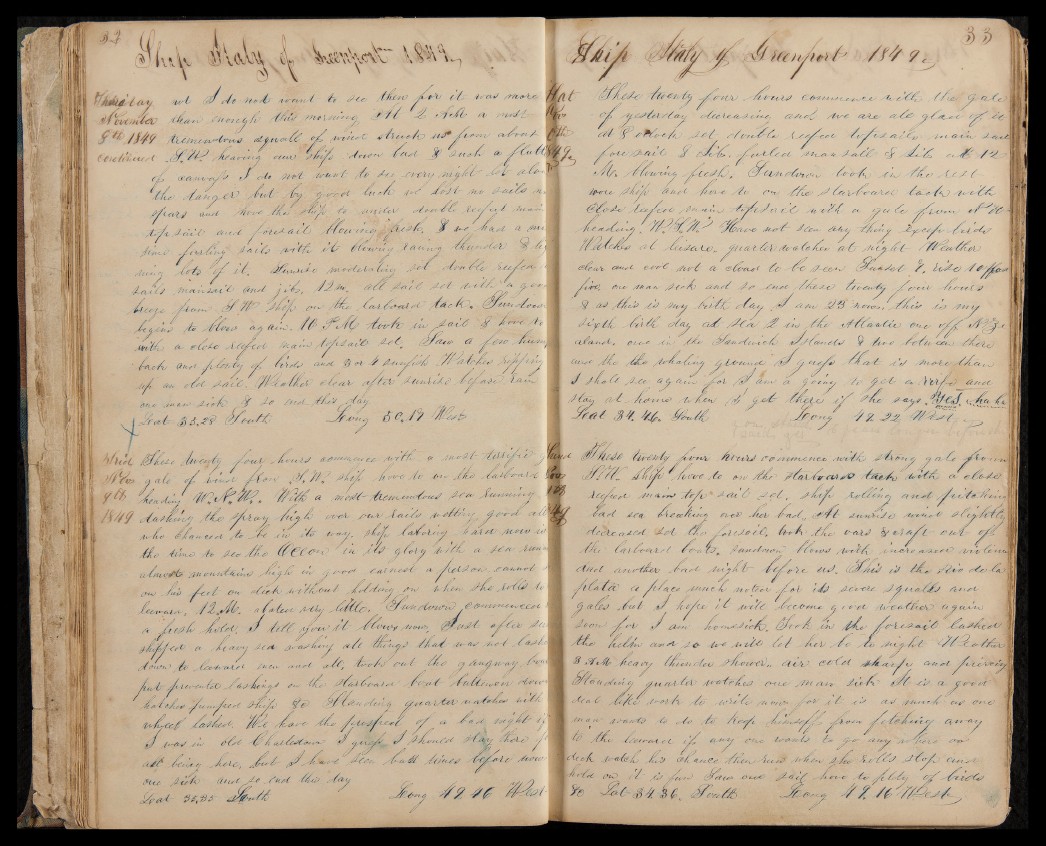 32
Ship Italy of Greenport 1849
Thursday
November
8th 1849
continued
I do not want to see them for it was more
than enough this morning. At 2 AM a most
tremendous squall of wind struck us from about
S.W. heaving our ship down bad & such a
of canvass I do not want to see every night
the danger but by good luck we lost no sails
spars and have the ship to under double reefed main
top sail and foresail blowing fresh. & we had a
time furling sails with it blowing raining thunder &
lots of it. Sunrise moderating set double reefed
sails mainsail and jibs. 12 m. all sail set with a good
breeze from S W ship on the larboard tack. Sundown
begins to blow again. 10 P M took in sail & hove to
with a close reefed main topsail set. Saw a few hump
backs and plenty of birds and 3 or 4 Watches ripping
up an old sail. Weather clear after sunrise before rain
one man sick & so end this day
Leat 35.28 South Long 50.19 West
Frid
Nov
9th
1849
These twenty four hours commence with a most terrific
gale of wind from S.W. ship hove to on the larboard
heading W.N.W. With a most tremendous sea running
dashing the spray high over our rails wetting good
who chanced to be in its way. ship laboring hard now is
the time to see the Ocean in its glory with a sea
almost mountains high in good earnest a person cannot
on his feet on deck without holding on when she rolls to
leeward. 12.M. abates very little. Sundown commences
a fresh hold. I tell you it blows now. Just after
shipped a heavy sea washing all things that was not lashed
down to leeward men and all, took out the gangway
put preventer lashings on the starboard boat battened down
hatches pumped ship &c Standing quarter watches with
wheel lashed. We have the prospect of a bad night
I was in old Charlestown I guess I should stay there
all being here, but I have seen bad times before now
one sick and so end this day
Leat 35.35 South Long 49 46 West
33
Ship Italy of Greenport 1849
Sat
Nov
10th
1849
These twenty four hours commence with the gale
of yesterday decreasing and we are all glad of it
at 8 oclock set double reefed topsails main sail
fore sail & Jib. furled mainsail & Jib at 12
M. blowing fresh. Sundown took in the rest
wore ship and hove to on the starboard tack with
Close reefed main topsail with a gale from
heading. W.S.W. Have not seen any thing except birds
Watches at leisure. quarter watches at night Weather
clear and cool not a cloud to be seen Sunset 7. rise 10
five one man sick and so end these twenty four hours
& as this is my birth day, I am 23 now. this is my
sixth birth day at sea 2 in the Atlantic one off N Ze
aland, one in the Sandwich Islands & two between there
and the the whaling ground I guess that is more than
I shall see again for I am a going to get a wife and
stay at home when I get there if she says. Yes.
Leat 34.46. South Long 49.22 West
Sund
Nov
These twenty four hours commence with strong gale from
S.W. ship hove to on the starboard tack with a close
reefed main top sail set. ship rolling and pitching
bad sea breaking over her bad. At sunrise wind slightly
decreased set the foresail, took the oars & craft out of
the larboard boats, sundown blows with increased violence
and another bad night before us. This is the Rio de la
plata a place much noted for its severe squalls and
gales but I hope it will become good weather again
soon for I am homesick. Took in the foresail lashed
the helm and so we will let her be to night Weather
3 AM heavy thunder shower. air cold sharp and piercing
Standing quarter watches one man sick It is a good
deal like work to write now for it is as much as one
man wants to do to keep himself from fetching away
to the leeward if any one wants to go any where on
deck watch his chance then run when she rolls stop and
hold on it is fun Saw one sail hove to plty of birds
So Lat 34.36. South Long 49.16 West